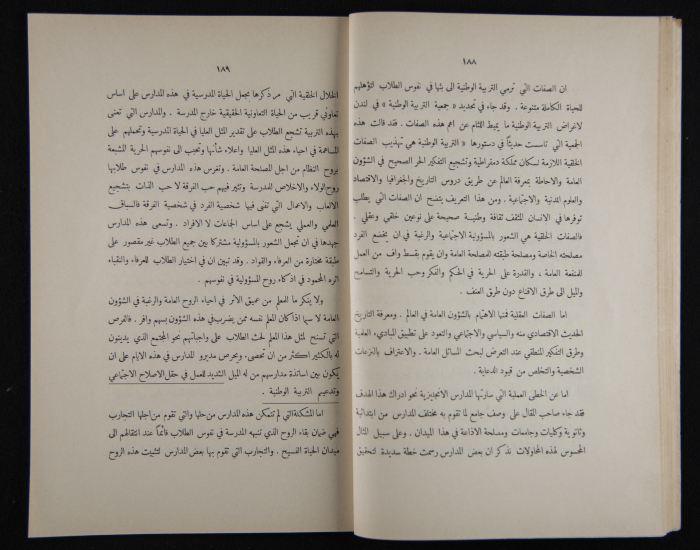 ١٨٨
ان الصفات التي ترمي التربية الوطنية الى بثها في نفوس الطلاب لتؤهلهم
للحياة الكاملة متنوعة . وقد جاء في تحديد « جمعية التربية الوطنية » في لندن
لاغراض التربية الوطنية ما يميط اللثام عن اهم هذه الصفات . فقد قالت هذه
الجمعية التي تأسست حديثاً في دستورها « التربية الوطنية هي تهذيب الصفات
الخلقية اللازمة لسكان مملكة دمقراطية وتشجيع التفكير الحر الصحيح في الشؤون
العامة والاحاطة بمعرفة العالم عن طريق دروس التاريخ والجغرافيا والاقتصاد
والعلوم المدنية والاجتماعية . ومن هذا التعريف يتضح ان الصفات التي يطلب
توفرها في الانسان المثقف ثقافة وطنية صحيحة على نوعين خلقي وعقلي .
فالصفات الخلقية هي الشعور بالمسؤولية الاجتماعية والرغبة في ان يخضع الفرد
مصلحته الخاصة ومصلحة طبقته للمصلحة العامة وان يقوم بقسط واف من العمل
للمنفعة العامة ، والقدرة على الحرية في الحكم والفكر وحب الحرية والتسامح
والميل الى طرق الاقناع دون طرق العنف .
اما الصفات العقلية فمنها الاهتمام بالشؤون العامة في العالم . ومعرفة التاريخ
الحديث الاقتصادي منه والسياسي والاجتماعي والتعود على تطبيق المبادىء العلمية
وطرق التفكير المنطقي عند التعرض لبحث المسائل العامة . والاعتراف بالنزعات
الشخصية والتخلص من قيود الدعاية .
اما عن الخطى العملية التي سارتها المدارس الانجليزية نحو ادراك هذا الهدف
فقد جاء صاحب المقال على وصف جامع لما تقوم به مختلف المدارس من ابتدائية
وثانوية وكليات وجامعات ومصلحة الاذاعة في هذا الميدان . وعلى سبيل المثال
المحسوس لهذه المحاولات نذكر ان بعض المدارس رسمت خطة سديدة لتحقيق
١٨٩
الخلال الخلقية التي مر ذكرها بجعل الحياة المدرسية في هذه المدارس على اساس
تعاوني قريب من الحياة التعاونية الحقيقية خارج المدرسة . والمدارس التي تعنى
بهذه التربية تشجع الطلاب على تقدير المثل العليا في الحياة المدرسية وتحملهم على
المساهمة في احياء هذه المثل العليا واعلاء شأنها وتحبب الى نفوسهم الحرية المشبعة
بروح النظام من اجل المصلحة العامة . وتغرس هذه المدارس في نفوس طلابها
روح الولاء والاخلاص للمدرسة وتثير فيهم حب الفرقة لا حب الذات بتشجيع
الالعاب والاعمال التي تفنى فيها شخصية الفرد في شخصية الفرقة فالسباق
العلمي والعملي يشجع على اساس الجماعات لا الافراد . وتسعى هذه المدارس
جهدها في ان تجعل الشعور بالمسؤولية مشتركا بين جميع الطلاب غير مقصور على
طبقة مختارة من العرفاء والقواد . وقد تبين ان في اختيار الطلاب للعرفاء والنقباء
اثره المحمود في اذكاء روح المسؤولية في نفوسهم .
ولا ينكر ما للمعلم من عميق الاثر في احياء الروح العامة والرغبة في الشؤون
العامة لا سيما اذا كان المعلم نفسه ممن يضرب في هذه الشؤون بسهم وافر . فالفرص
التي تسنح لمثل هذا المعلم لحث الطلاب على واجباتهم نحو المجتمع الذي يدينون
له بالكثير اكثر من ان تحصى . ويحرص مديرو المدارس في هذه الايام على ان
يكون بين اساتذة مدارسهم من له الميل الشديد للعمل في حقل الاصلاح الاجتماعي
وتدعيم التربية الوطنية .
اما المشكلة التي لم تتمكن هذه المدارس من حلها والتي تقوم من اجلها التجارب
فهي ضمان بقاء الروح الذي تنبهه المدرسة في نفوس الطلاب قائماً عند انتقالهم الى
ميدان الحياة الفسيح . والتجارب التي تقوم بها بعض المدارس لتثبيت هذه الروح